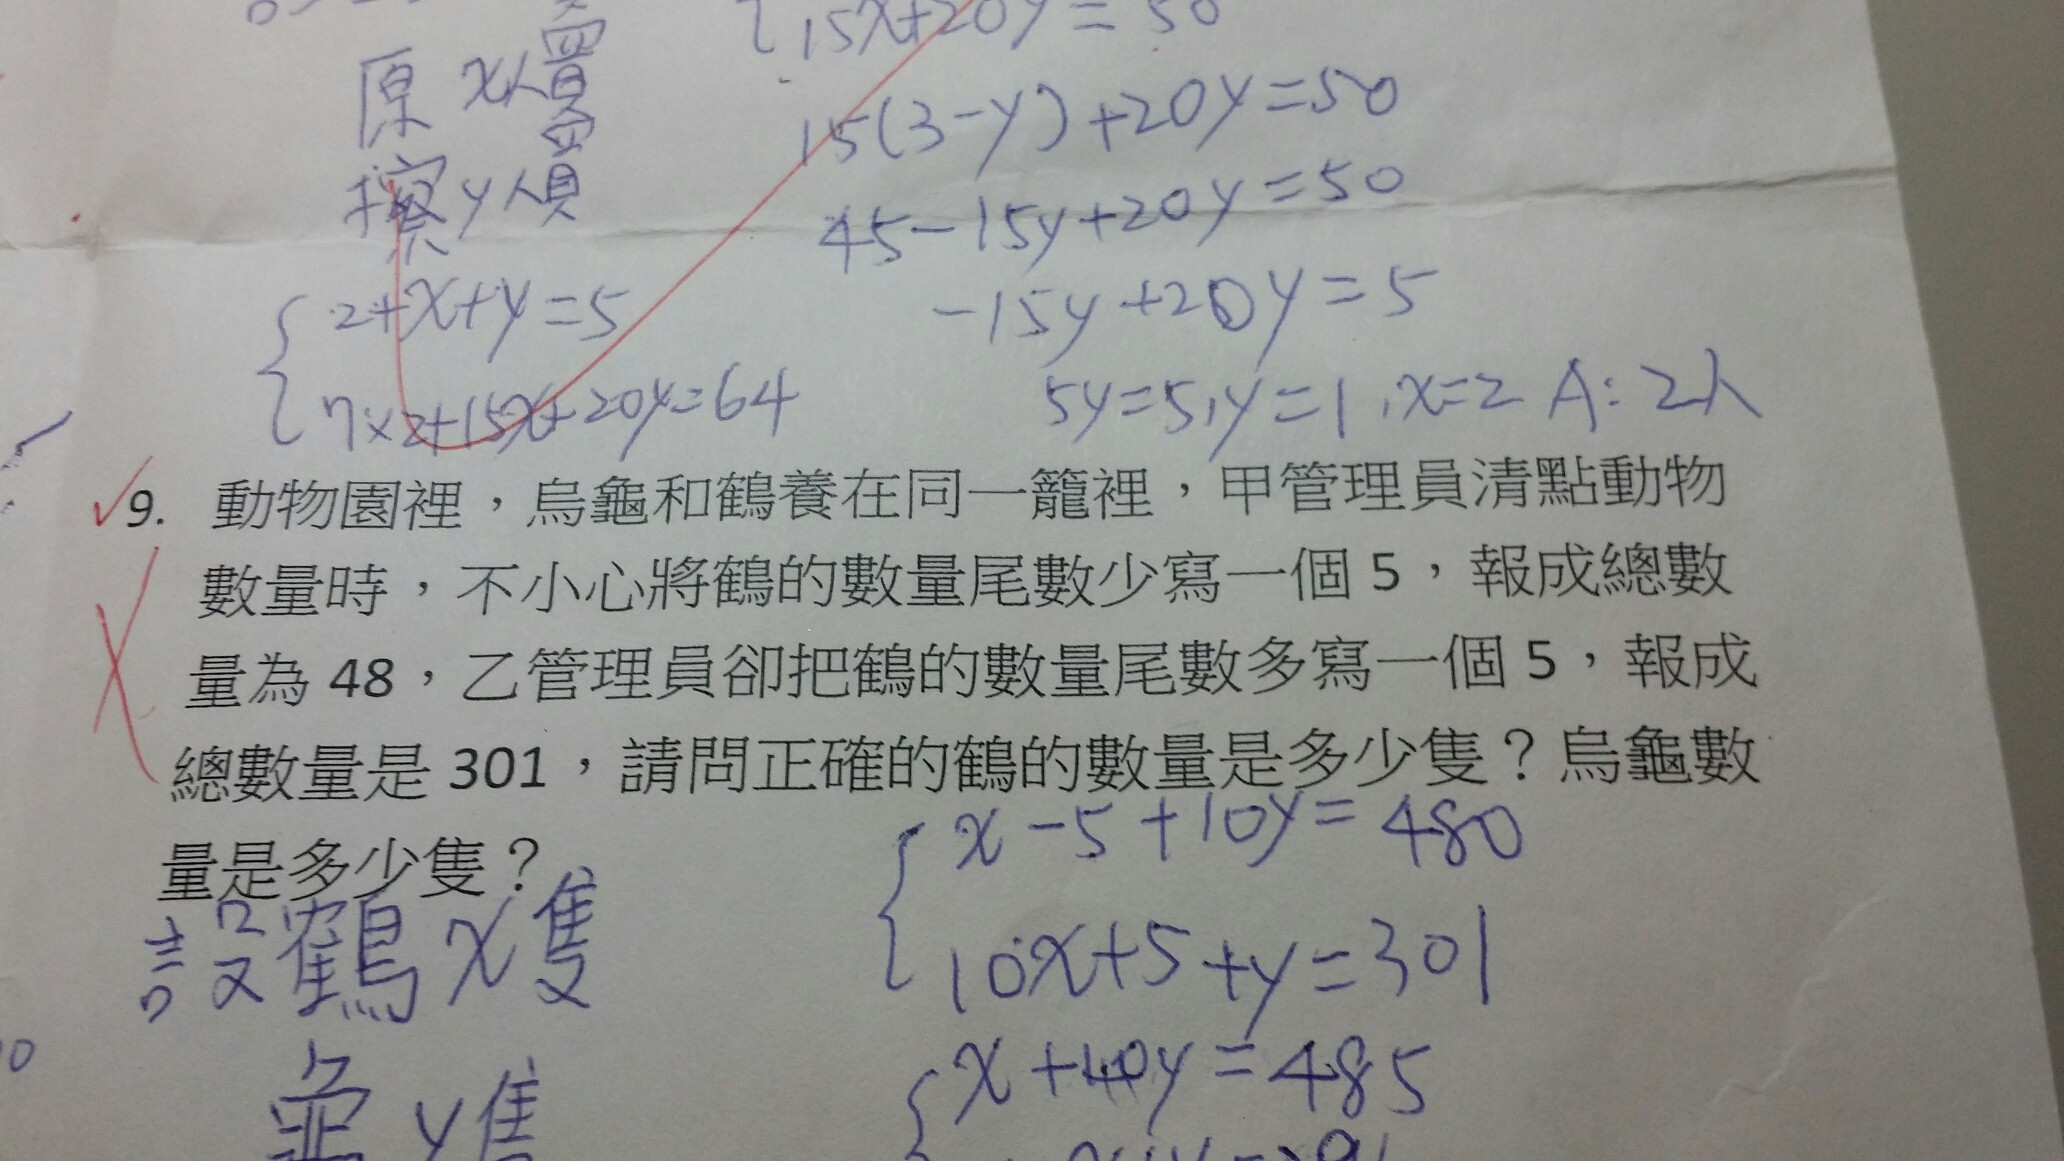 15x+20y=50
原 x人買
15(3-y)+20y=50
擦 y人買
45-15y+20y=50
2+x+y=5
-15y+20y=5
7×2+15x+20y=64
5y=5,y=1,x=2 A:2人
9. 動物園裡，烏龜和鶴養在同一籠裡，甲管理員清點動物
數量時，不小心將鶴的數量尾數少寫一個 5，報成總數
量為 48，乙管理員卻把鶴的數量尾數多寫一個 5，報成
總數量是 301，請問正確的鶴的數量是多少隻？烏龜數
量是多少隻？
x-5+10y=480
設鶴 x隻
10x+5+y=301
龜 y隻
x+10y=485